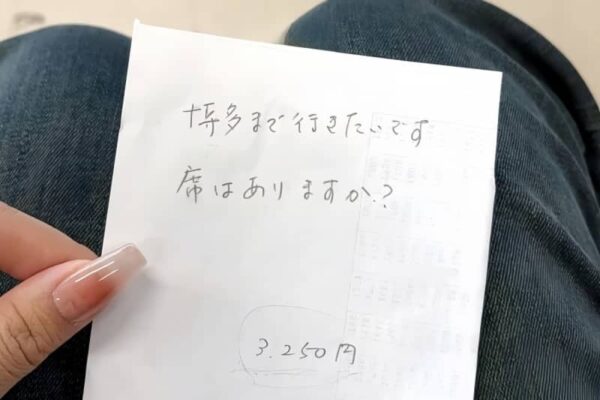 博多まで行きたいです
席はありますか?
3.250円